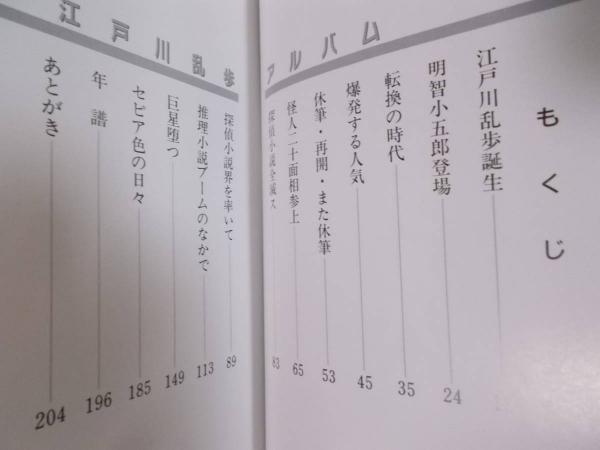 もくじ
江戸川乱歩誕生
明智小五郎登場 24
転換の時代 35
爆発する人気 45
休筆・再開・また休筆 53
怪人二十面相参上 65
探偵小説全滅ス 83
江戸川乱歩アルバム
探偵小説界を率いて 89
推理小説ブームのなかで 113
巨星堕つ 149
セピア色の日々 185
年譜 196
あとがき 204